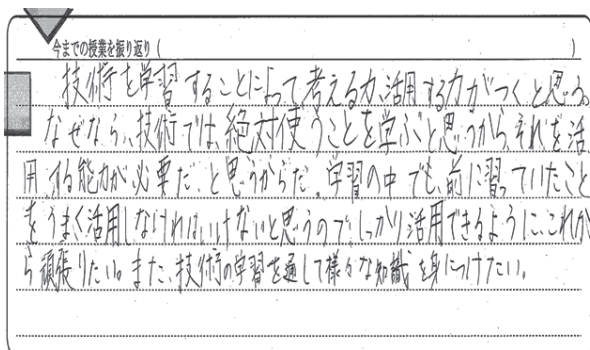 今までの授業を振り返り（ ）
技術を学習することによって考える力、活用する力がつくと思う。
なぜなら、技術では、絶対使うことを学ぶと思うから、それを活
用する能力が必要だ、と思うからだ。学習の中でも、前に習っていたこと
をうまく活用しなければいけないと思うので、しっかり活用できるように、これか
ら頑張りたい。また、技術の学習を通して様々な知識を身につけたい。